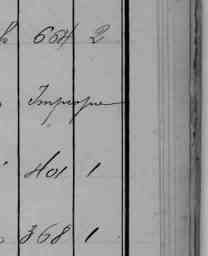 664 2
Improper
401 1
368 1